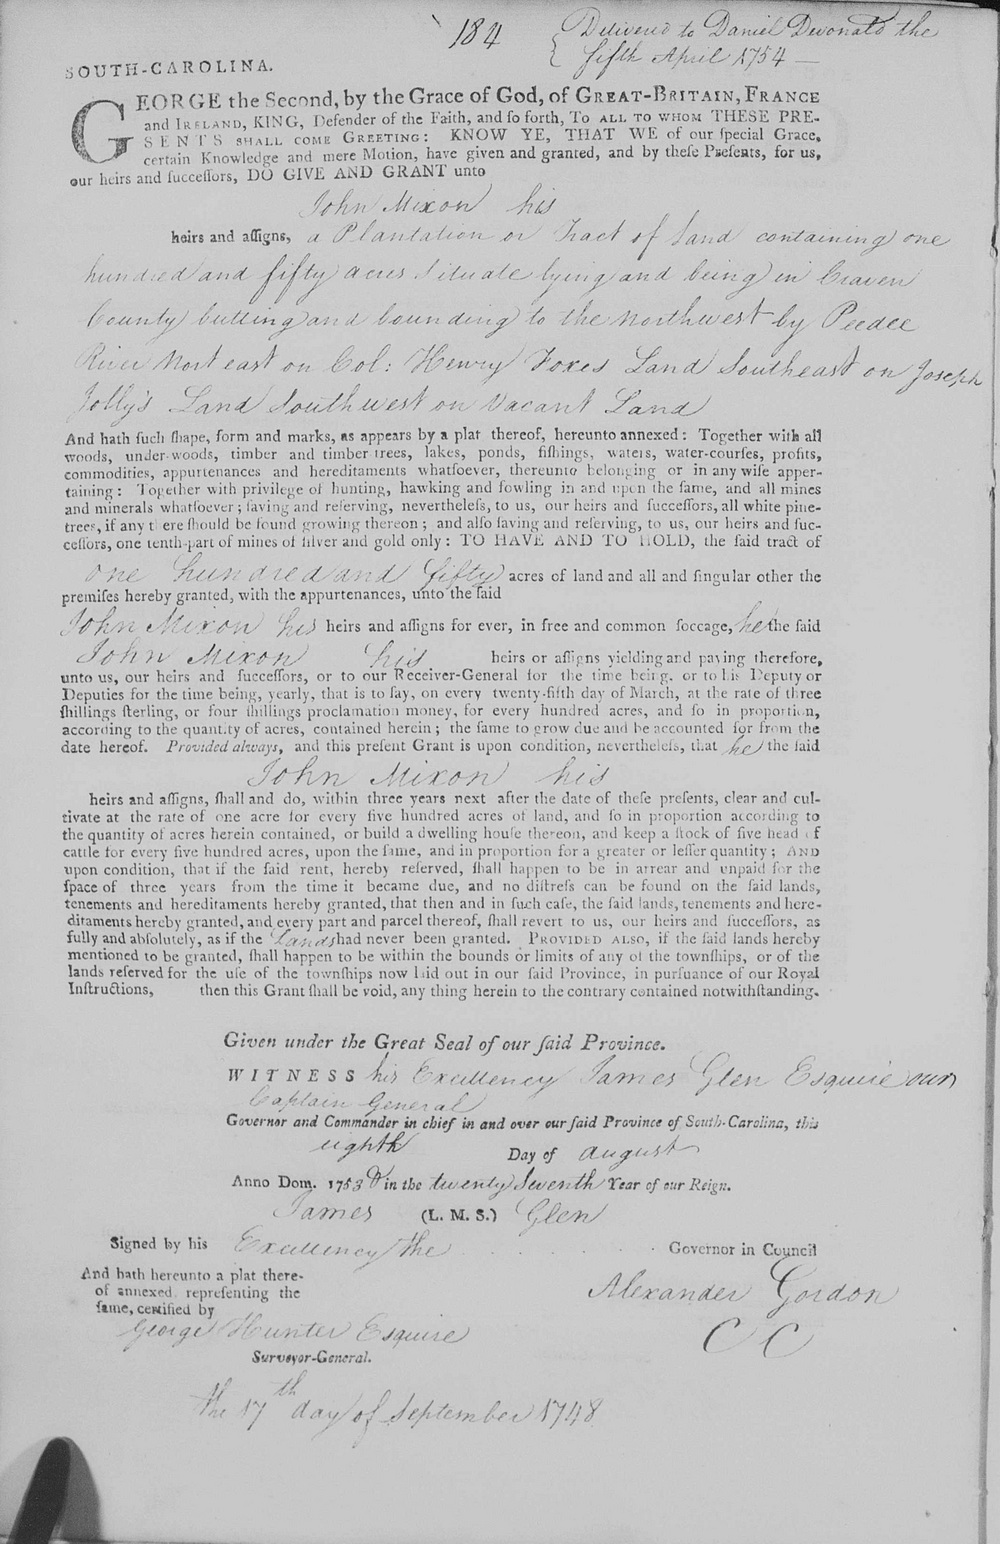 184
Delivered to Daniel Devonald the
fifth April 1754 —
SOUTH-CAROLINA.
GEORGE the Second, by the Grace of God, of GREAT-BRITAIN, FRANCE
and IRELAND, KING, Defender of the Faith, and ſo forth, TO ALL TO WHOM THESE PRE-
SENTS SHALL COME GREETING: KNOW YE, THAT WE of our ſpecial Grace,
certain Knowledge and mere Motion, have given and granted, and by theſe Preſents, for us,
our heirs and ſucceſſors, DO GIVE AND GRANT unto
John Mixon his
heirs and aſſigns, a Plantation or Tract of Land containing one
hundred and fifty acres Situate lying and being in Craven
County butting and bounding to the Northwest by Peedee
River Nort east on Col: Henry Foxes Land Southeast on Joseph
Jolly's Land Southwest on Vacant Land
And hath ſuch ſhape, form and marks, as appears by a plat thereof, hereunto annexed: Together with all
woods, under-woods, timber and timber-trees, lakes, ponds, fiſhings, waters, water-courſes, profits,
commodities, appurtenances and hereditaments whatſoever, thereunto belonging or in any wiſe apper-
taining: Together with privilege of hunting, hawking and fowling in and upon the ſame, and all mines
and minerals whatſoever; ſaving and reſerving, nevertheleſs, to us, our heirs and ſucceſſors, all white pine-
trees, if any there ſhould be found growing thereon; and alſo ſaving and reſerving, to us, our heirs and ſuc-
ceſſors, one tenth-part of mines of ſilver and gold only: TO HAVE AND TO HOLD, the ſaid tract of
one hundred and fifty acres of land and all and ſingular other the
premiſes hereby granted, with the appurtenances, unto the ſaid
John Mixon his heirs and aſſigns for ever, in free and common ſoccage, he the ſaid
John Mixon his heirs or aſſigns yielding and paying therefore,
unto us, our heirs and ſucceſſors, or to our Receiver-General for the time being, or to his Deputy or
Deputies for the time being, yearly, that is to ſay, on every twenty-fifth day of March, at the rate of three
ſhillings ſterling, or four ſhillings proclamation money, for every hundred acres, and ſo in proportion,
according to the quantity of acres, contained herein; the ſame to grow due and be accounted for from the
date hereof. Provided always, and this preſent Grant is upon condition, nevertheleſs, that he the ſaid
John Mixon his
heirs and aſſigns, ſhall and do, within three years next after the date of theſe preſents, clear and cul-
tivate at the rate of one acre for every five hundred acres of land, and ſo in proportion according to
the quantity of acres herein contained, or build a dwelling houſe thereon, and keep a ſtock of five head of
cattle for every five hundred acres, upon the ſame, and in proportion for a greater or leſſer quantity; AND
upon condition, that if the ſaid rent, hereby reſerved, ſhall happen to be in arrear and unpaid for the
ſpace of three years from the time it became due, and no diſtreſs can be found on the ſaid lands,
tenements and hereditaments hereby granted, that then and in ſuch caſe, the ſaid lands, tenements and here-
ditaments hereby granted, and every part and parcel thereof, ſhall revert to us, our heirs and ſucceſſors, as
fully and abſolutely, as if the Lands had never been granted. PROVIDED ALSO, if the ſaid lands hereby
mentioned to be granted, ſhall happen to be within the bounds or limits of any of the townſhips, or of the
lands reſerved for the uſe of the townſhips now laid out in our ſaid Province, in purſuance of our Royal
Inſtructions, then this Grant ſhall be void, any thing herein to the contrary contained notwithſtanding.
Given under the Great Seal of our ſaid Province.
WITNESS his Excellency James Glen Esquire our
Captain General
Governor and Commander in chief in and over our ſaid Province of South-Carolina, this
eighth Day of august
Anno Dom. 1753 in the twenty Seventh Year of our Reign.
James (L. M. S.) Glen
Signed by his Excellency the . . . . . . Governor in Council
And hath hereunto a plat there-
of annexed, repreſenting the
ſame, certified by
Alexander Gordon
C C
George Hunter Esquire
Surveyor-General.
the 17th day of September 1748